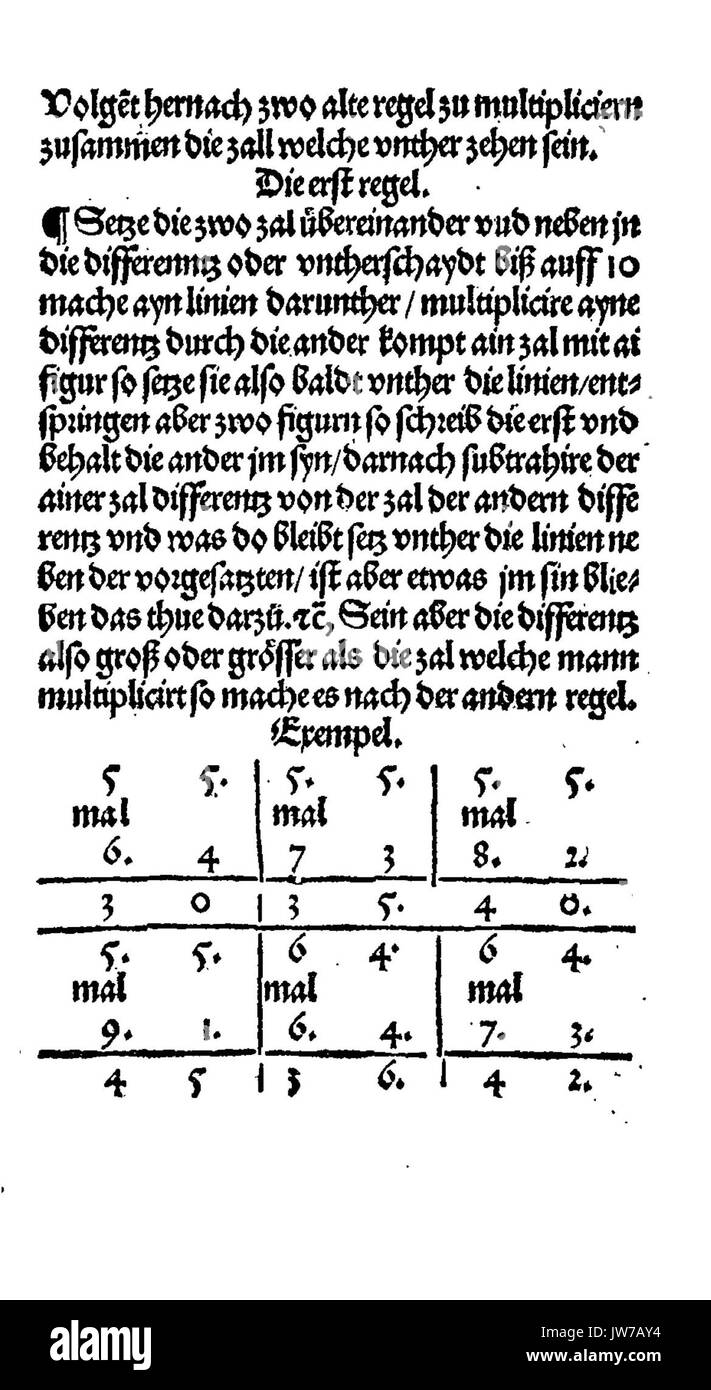 Volgēt hernach zwo alte regel zu multipliciern
zusammen die zall welche vnther zehen sein.
Die erst regel.
¶ Setze die zwo zal übereinander vnd neben jn
die differenntz oder vntherschaydt biß auff 10
mache ayn linien darunther / multiplicire ayne
differentz durch die ander kompt ain zal mit ai
figur so setze sie also baldt vnther die linien/ent⸗
springen aber zwo figurn so schreib die erst vnd
behalt die ander jm syn/darnach subtrahire der
ainer zal differentz von der zal der andern diffe
rentz vnd was do bleibt setz vnther die linien ne
ben der vorgesatzten/ ist aber etwas jm sin blie⸗
ben das thue darzů.⁊c̄, Sein aber die differentz
also groß oder grösser als die zal welche mann
multiplicirt so mache es nach der andern regel.
Exempel.
5 5. 5. 5. 5. 5.
mal mal mal
6. 4 7 3 8. 2.
3 0 3 5. 4 0.
5. 5. 6 4. 6 4.
mal mal mal
9. 1. 6. 4. 7. 3.
4 5 3 6. 4 2.
alamy
Image ID: JW7AY4
www.alamy.com